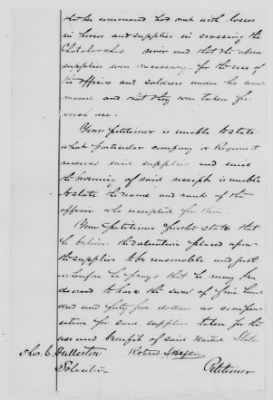 that he command had met with losses
in horses and supplies in crossing the
river and that the above
supplies were necessary for the use of
the officers and soldiers under his com
mand and that they were taken for
such use.
Your petitioner is unable to state
what particular company or Regiment
received said supplies and since
the burning of said receipt is unable
to state the name and rank of the
officer who receipted for them.
Your petitioner further state that
he believe the valuation placed upon
the supplies to be reasonable and just
he prays that he may be
allowed to have the sum of five hun
dred and forty five dollars as compen
sation for said supplies taken for the
use and benefit of said United States
Thos. C. Fullerton Robert
Solicitor Petitioner